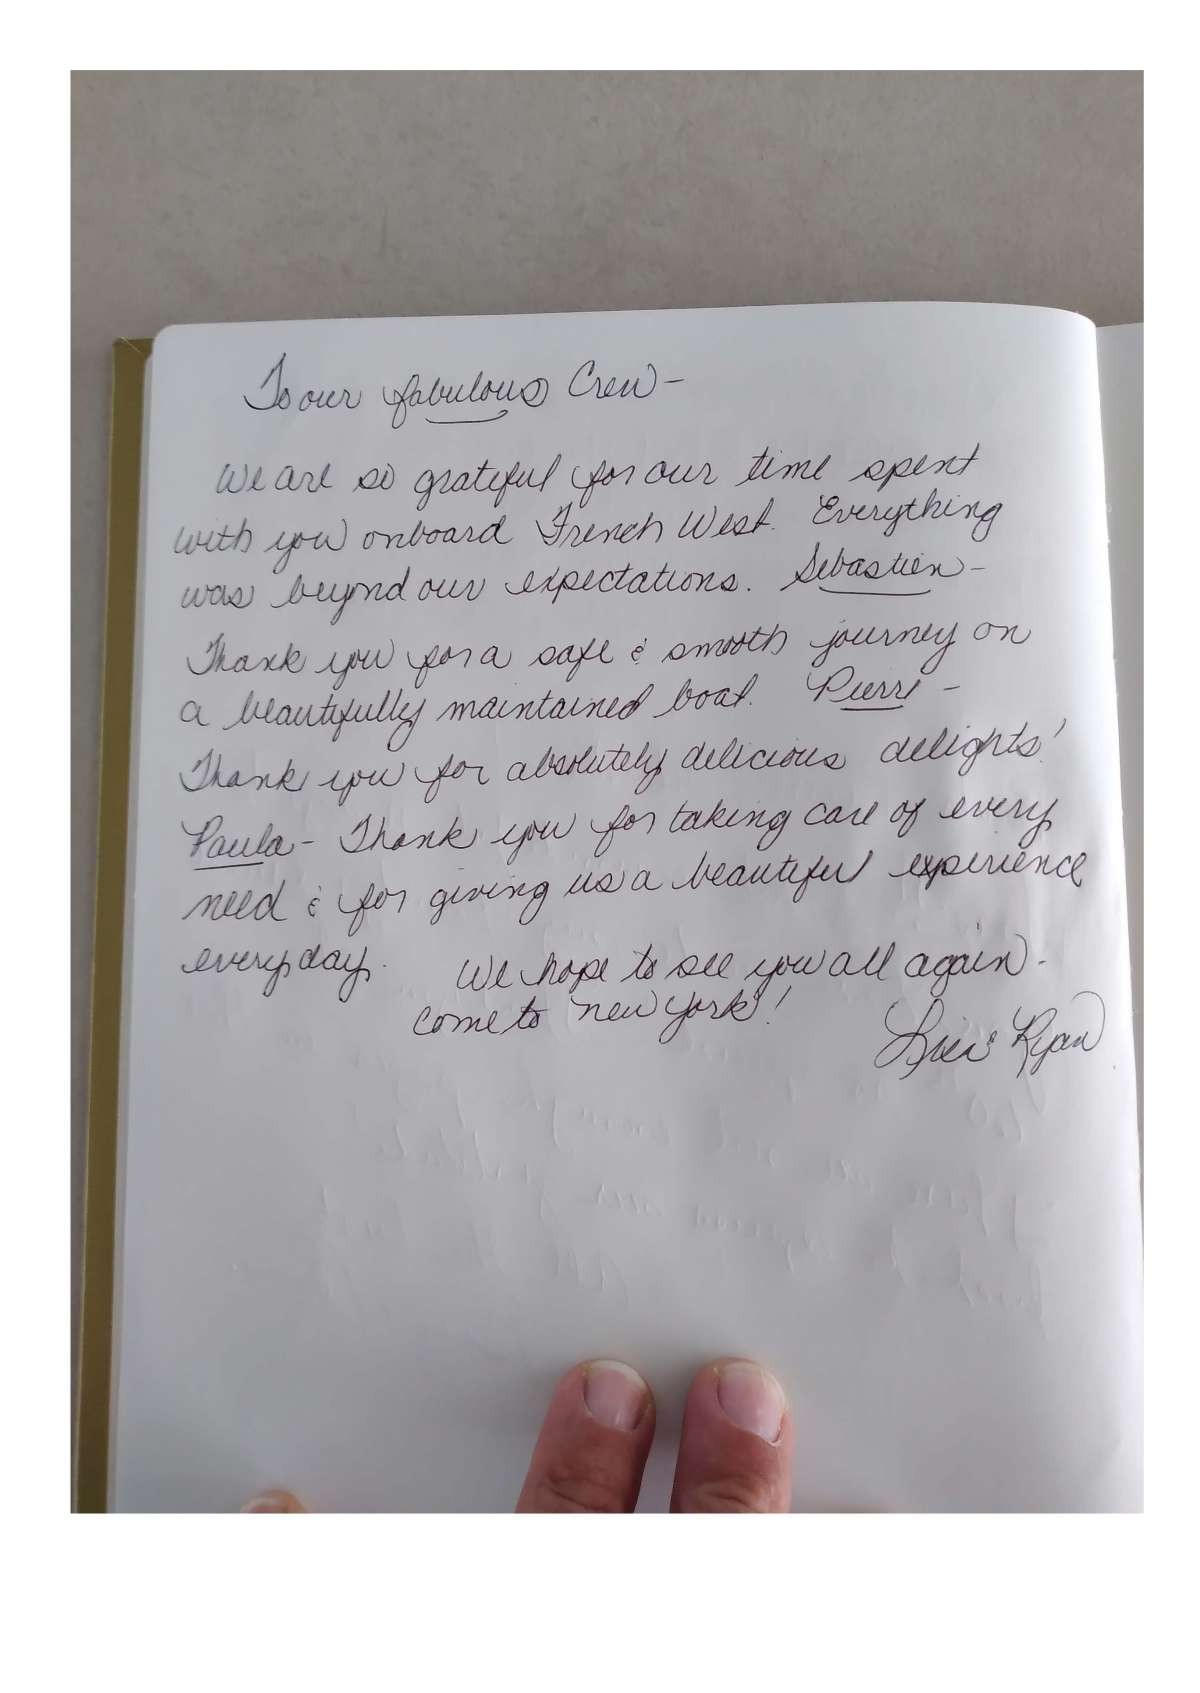 To our fabulous Crew -
We are so grateful for our time spent
with you onboard French West. Everything
was beyond our expectations. Sebastien -
Thank you for a safe & smooth journey on
a beautifully maintained boat. Pierre -
Thank you for absolutely delicious delights!
Paula - Thank you for taking care of every
need & for giving us a beautiful experience
every day. We hope to see you all again -
come to new york!
& Ryan